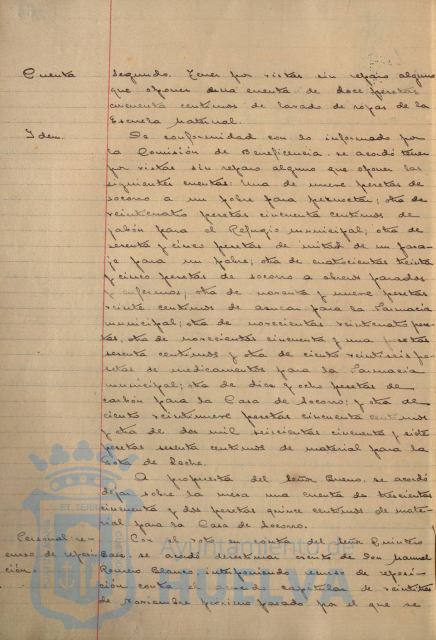 Cuenta
segundo. Tener por vistas sin reparo alguno
que oponer a una cuenta de doce pesetas
cincuenta centimos de lavado de ropas de la
Escuela Maternal.
Idem.
De conformidad con lo informado por
la Comisión de Beneficencia se acordó tener
por vistas sin reparo alguno que oponer las
siguientes cuentas: Una de nueve pesetas de
socorro a un pobre para pernoctar; otra de
veinticuatro pesetas cincuenta centimos de
jabón para el Refugio municipal; otra de
sesenta y cinco pesetas de mitad de un pasa-
je para un pobre; otra de cuatrocientas treinta
y cinco pesetas de socorro a obreros parados
y enfermos; otra de noventa y nueve pesetas
veinte centimos de azucar para la Farmacia
municipal; otra de novecientas veinticuatro pese-
tas, otra de novecientas cincuenta y una pesetas
sesenta centimos y otra de ciento veintiseis pe-
setas de medicamentos para la Farmacia
municipal; otra de diez y ocho pesetas de
carbón para la Casa de Socorro; y otra de
ciento veintinueve pesetas cincuenta centimos
y otra de dos mil seiscientas cincuenta y siete
pesetas sesenta centimos de material para la
Gota de Leche.
A propuesta del Señor Bueno, se acordó
dejar sobre la mesa una cuenta de trescientas
cincuenta y dos pesetas quince centimos de mate-
rial para la Casa de Socorro.
Personal: re-
curso de reposi-
ción.
Con el voto en contra del Señor Quintero
Baez, se acordó desestimar escrito de Don Manuel
Romero Blanco, interponiendo recurso de reposi-
ción contra el acuerdo capitular de veintitres
de noviembre proximo pasado por el que se
Ayuntamiento de
HUELVA